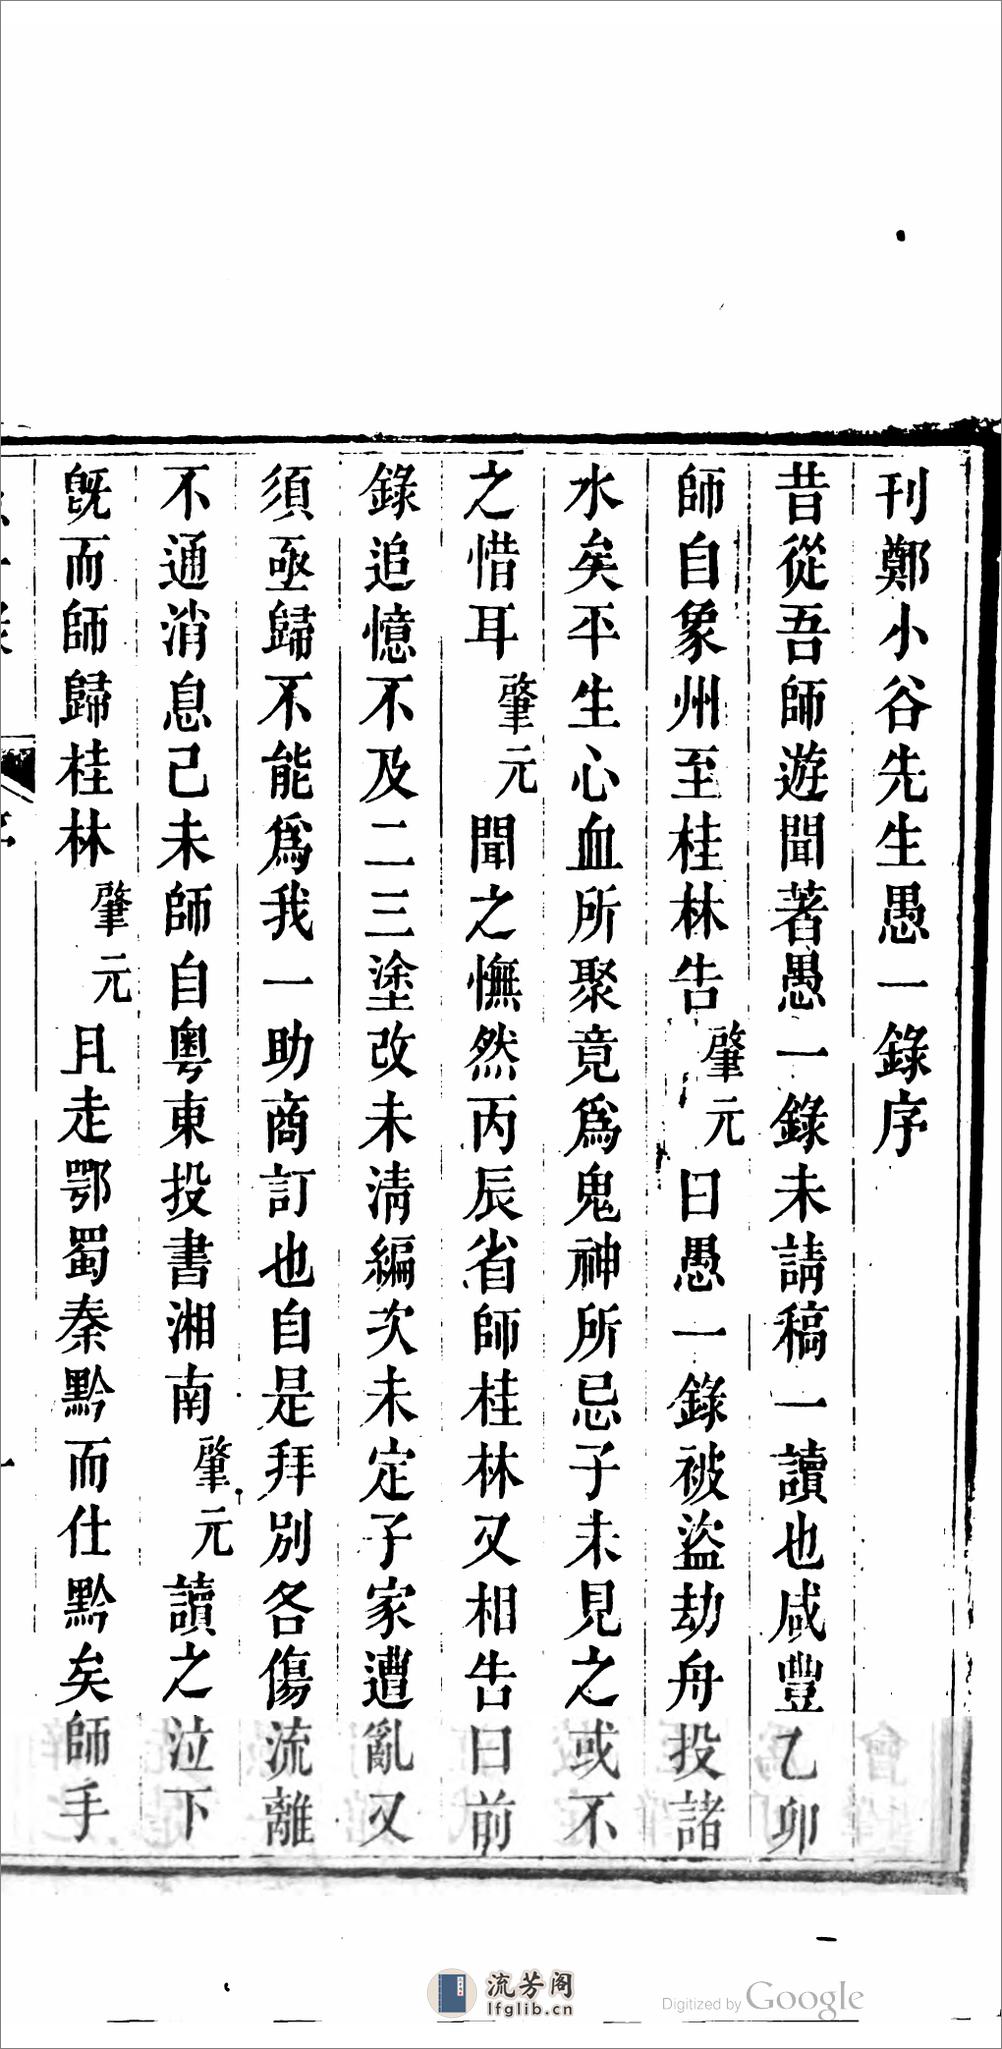 刊鄭小谷先生愚一錄序
昔從吾師遊聞著愚一錄未請稿一讀也咸豐乙卯
師自象州至桂林告肇元曰愚一錄被盜劫舟投諸
水矣平生心血所聚竟爲鬼神所忌子未見之或不
之惜耳肇元聞之憮然丙辰省師桂林又相告曰前
錄追憶不及二三塗改未淸編次未定子家遭亂又
須亟歸不能爲我一助商訂也自是拜別各傷流離
不通消息己未師自粵東投書湘南肇元讀之泣下
旣而師歸桂林肇元且走鄂蜀秦黔而仕黔矣師手
流芳阁
lfglib.cn
Digitized by Google